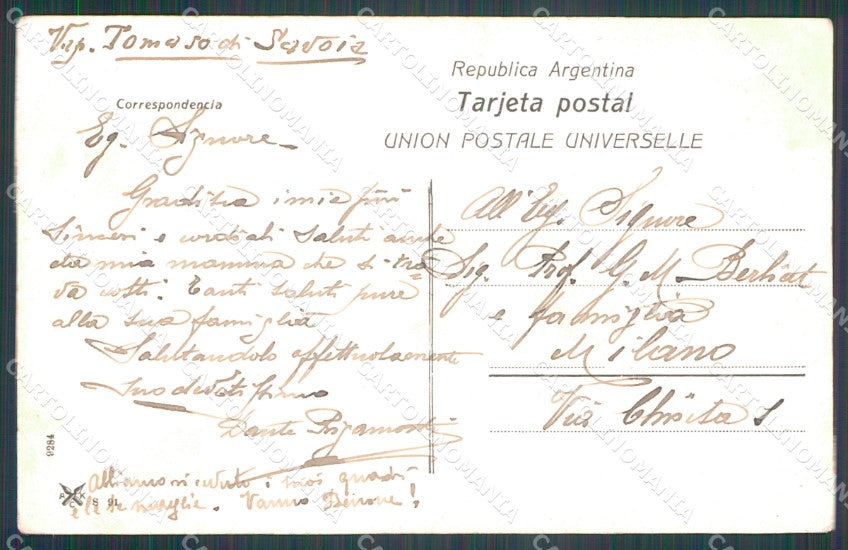 Vap. Tomaso di Savoia
Republica Argentina
Tarjeta postal
UNION POSTALE UNIVERSELLE
Correspondencia
Eg. Signore
Gradisca i miei più
sinceri e cordiali saluti anche
da mia mamma che si tro-
va costì. Tanti saluti pure
alla sua famiglia
Salutandolo affettuosamente
Suo devotissimo
Dante
All'Eg. Signore
Sig. Prof. G. M.
e famiglia
Milano
Via
9284
Abbiamo veduto i tuoi quadri
e le tue Vanno Benone!
CARTOLINOMANIA